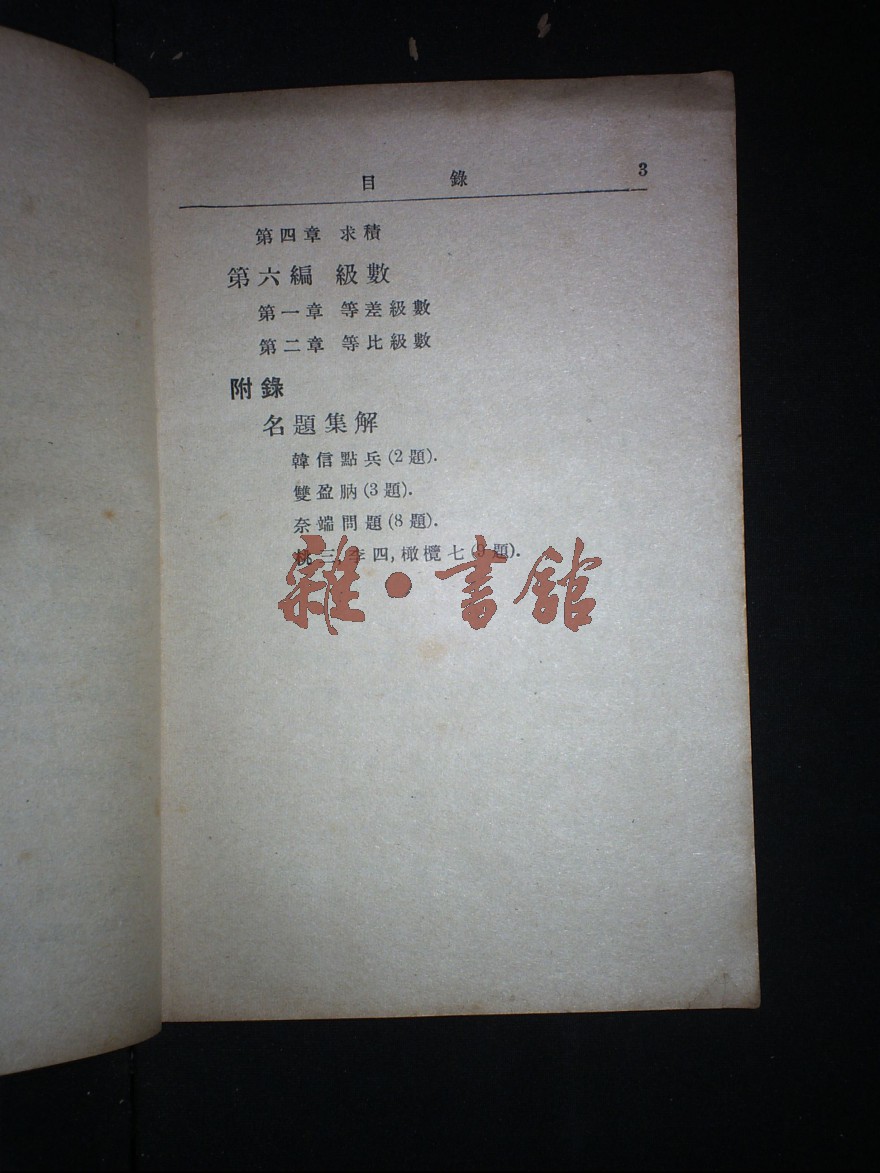 目 錄 3
第四章 求積
第六編 級數
第一章 等差級數
第二章 等比級數
附錄
名題集解
韓信點兵(2題).
雙盈朒(3題).
奈端問題(8題).
桃三,李四,橄欖七( 題).
雜•書館